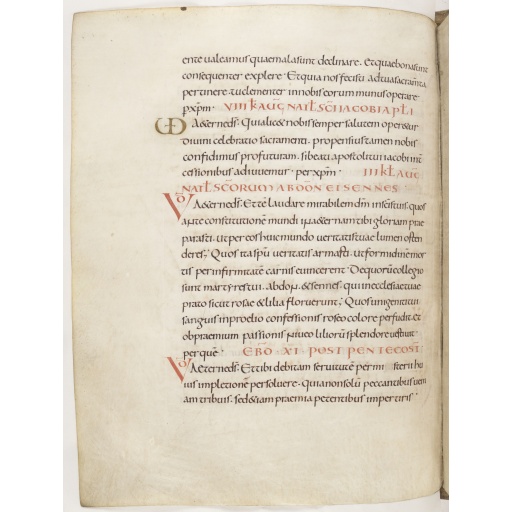 ente ualeamus quae mala sunt declinare. Et quae bona sunt
consequenter explere. Et quia nos fecisti ad tua sacramta
pertinere. tu clementer in nobis eorum munus operare
pxpm. VIII K AUG NAT SCI IACOBI APLI
VD Aeterne ds. Quia licet nobis semper salutem operetur
diuini celebratio sacramenti. propensius tamen nobis
confidimus profuturam. si beati apostoli tui iacobi inter
cessionibus adiuuemus. per xpm. III KL AUG
NATL SCORUM ABDON ET SENNES
VD Aeterne ds. Et te laudare mirabilem dm in scis tuis. quos
ante constitutione mundi in aeternam tibi gloriam prae
parasti. ut per eos huic mundo ueritatis tuae lumen osten
deres. Quos ita spu ueritatis armasti. ut formidine mor
tis per infirmitate carnis euincerent. De quoru collegio
sunt martyres tui. abdon. & sennes. qui in ecclesiae tuae
prato sicut rosae & lilia floruerunt. Quos unigeniti tui
sanguis in proelio confessionis roseo colore perfudit. et
ob praemium passionis niueo liliorum splendore uestiuit.
per que. EBD XI POST PENTECOST
VD Aeterne ds. Et tibi debitam seruitute per mi sterii hu
ius impletione persoluere. Quia non solu peccantibus ueni
am tribuis. sed etiam praemia petentibus impertiris.